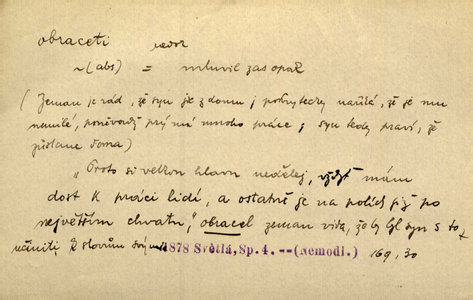 obraceti nedok
~(abs) = mluvil zas opak
(Zeman je rád, že syn jde z domu; pobyt tedy navrhá, že je mu
nemilé, poněvadž prý má mnoho práce; syn tedy praví, že
zůstane doma)
"Proto si velkou hlavu nedělej, vždyť mám
dost k práci lidí, a ostatně je na polích již po
největším chvatu," obracel zeman vida, že by byl syn s to,
učiniti, k slovům svým 1878 Světlá, Sp. 4. --(Nemodl.) 169, 30